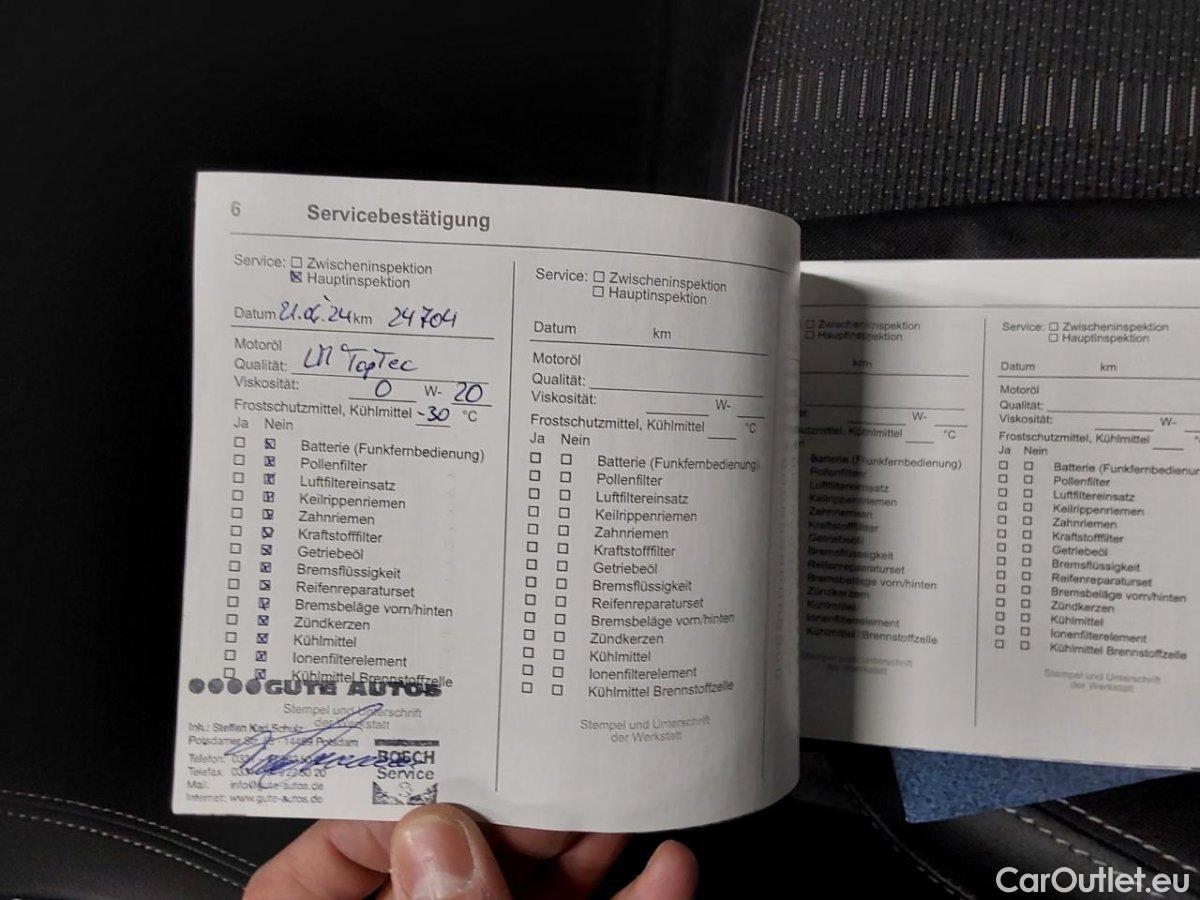 6 Servicebestätigung
Service: Zwischeninspektion
Hauptinspektion
Datum 21.06.24 km 24704
Motoröl
Qualität: LM TopTec
Viskosität: 0 W- 20
Frostschutzmittel, Kühlmittel -30 °C
Ja Nein
Batterie (Funkfernbedienung)
Pollenfilter
Luftfiltereinsatz
Keilrippenriemen
Zahnriemen
Kraftstofffilter
Getriebeöl
Bremsflüssigkeit
Reifenreparaturset
Bremsbeläge vorn/hinten
Zündkerzen
Kühlmittel
Ionenfilterelement
Kühlmittel Brennstoffzelle
GUTE AUTOS
Stempel und Unterschrift
der Werkstatt
Inh.: Steffen Karl Schulz
Potsdamer Str. 14469 Potsdam
Telefon:
Telefax: 20
Mail: info@gute-autos.de
Internet: www.gute-autos.de
BOSCH
Service
Service: Zwischeninspektion
Hauptinspektion
Datum km
Motoröl
Qualität:
Viskosität: W-
Frostschutzmittel, Kühlmittel °C
Ja Nein
Batterie (Funkfernbedienung)
Pollenfilter
Luftfiltereinsatz
Keilrippenriemen
Zahnriemen
Kraftstofffilter
Getriebeöl
Bremsflüssigkeit
Reifenreparaturset
Bremsbeläge vorn/hinten
Zündkerzen
Kühlmittel
Ionenfilterelement
Kühlmittel Brennstoffzelle
Stempel und Unterschrift
der Werkstatt
Zwischeninspektion
Hauptinspektion
km
W-
Kühlmittel °C
Batterie (Funkfernbedienung)
Pollenfilter
Luftfiltereinsatz
Keilrippenriemen
Zahnriemen
Kraftstofffilter
Getriebeöl
Bremsflüssigkeit
Reifenreparaturset
Bremsbeläge vorn/hinten
Zündkerzen
Kühlmittel
Ionenfilterelement
Kühlmittel Brennstoffzelle
Stempel und Unterschrift
der Werkstatt
Service: Zwischeninspektion
Hauptinspektion
Datum km
Motoröl
Qualität:
Viskosität: W-
Frostschutzmittel, Kühlmittel
Ja Nein
Batterie (Funkfernbedienun
Pollenfilter
Luftfiltereinsatz
Keilrippenriemen
Zahnriemen
Kraftstofffilter
Getriebeöl
Bremsflüssigkeit
Reifenreparaturset
Bremsbeläge vorn/hinten
Zündkerzen
Kühlmittel
Ionenfilterelement
Kühlmittel Brennstoffzelle
Stempel und Unterschrift
der Werkstatt
CarOutlet.eu